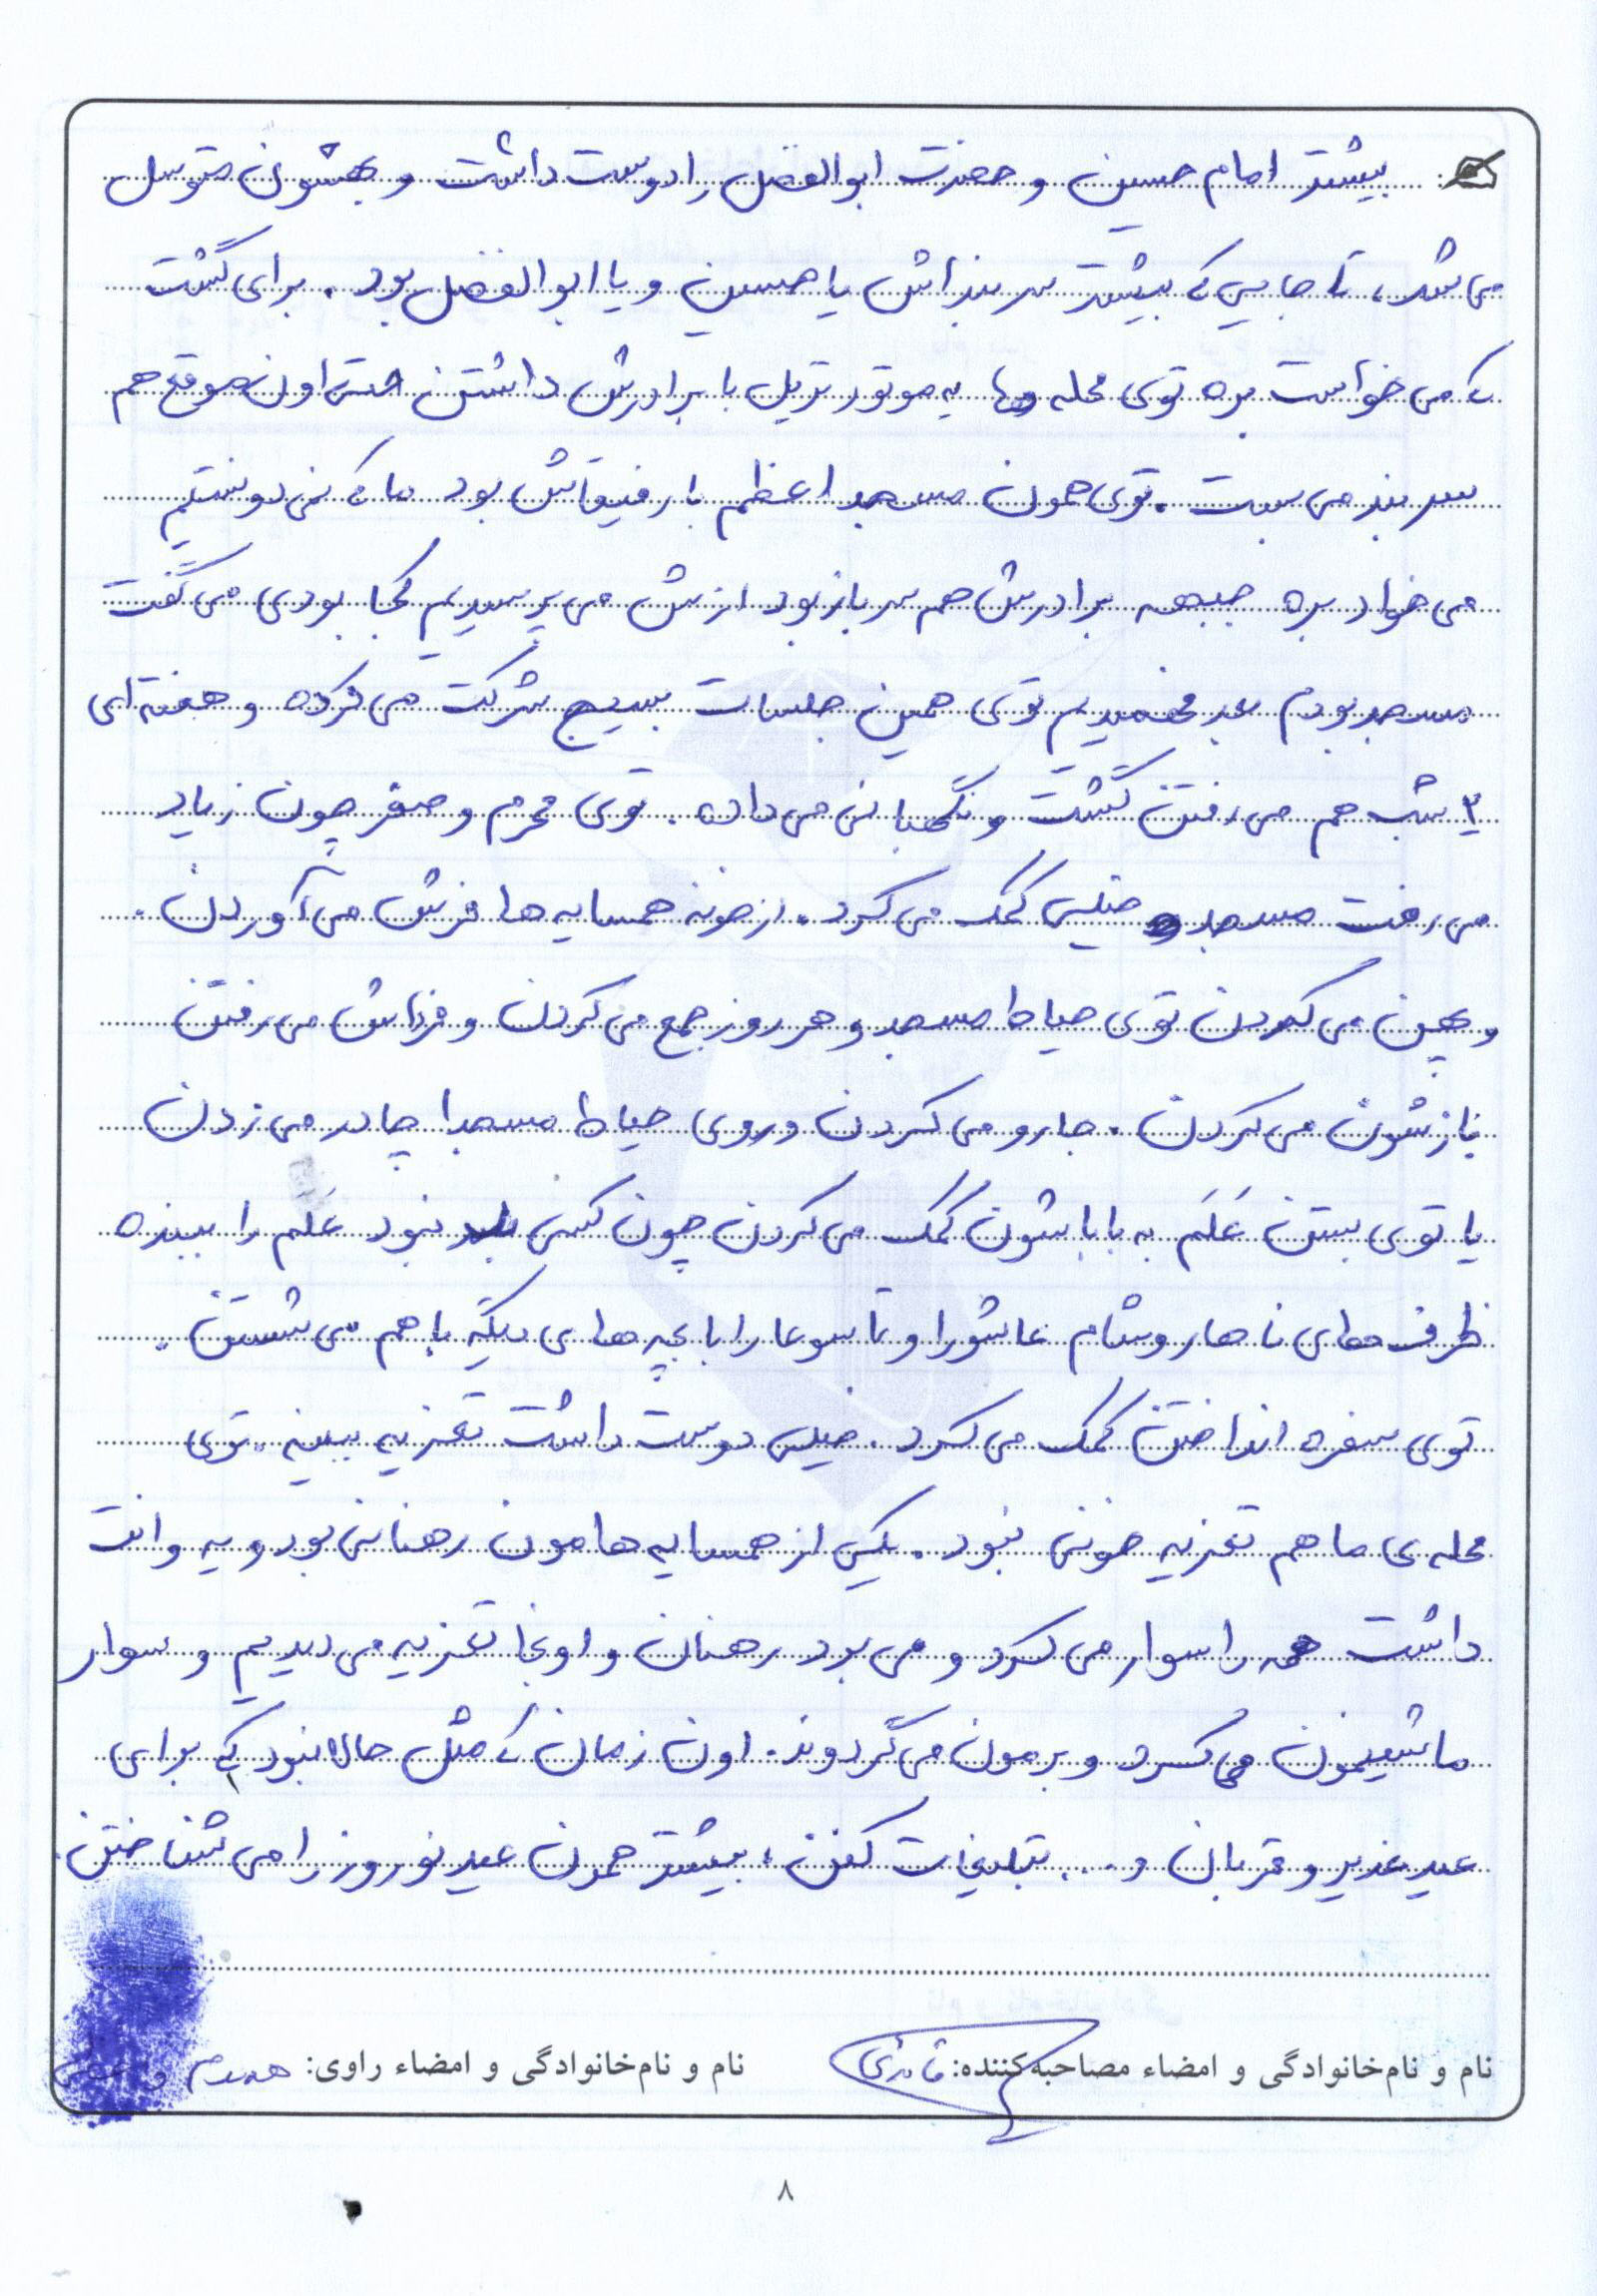 بیشتر امام حسین و حضرت ابوالفضل را دوست داشت و بهشون متوسل
می شد، تا جایی که بیشتر سربنداش یا حسین و یا ابوالفضل بود. برای گشت
که می خواست بره توی محله ها یه موتور تریل با برادرش داشتن حتی اون موقع هم
سربند می بست. توی همون مسجد اعظم با رفیقاش بود ما که نمی دونستیم
می خواد بره جبهه برادرش هم سرباز بود ازش می پرسیدیم کجا بودی می گفت
مسجد بودم بعد فهمیدیم توی همین جلسات بسیج شرکت می کرده و هفته ای
۲ شب هم می رفتن گشت و نگهبانی می داده. توی محرم و صفر چون زیاد
می رفت مسجد خیلی کمک می کرد. از خونه همسایه ها فرش می آوردن.
و پهن می کردن توی حیاط مسجد و هر روز جمع می کردن و فرداش می رفتن
بازشون می کردن. جارو می کردن و روی حیاط مسجد را چادر می زدن
یا توی بستن عَلَم به باباشون کمک می کردن چون کسی بلد نبود عَلَم را ببنده
ظرف های ناهار و شام عاشورا و تاسوعا را با بچه های دیگه با هم می شستن.
توی سفره انداختن کمک می کرد. خیلی دوست داشت تعزیه ببینه. توی
محله ی ما هم تعزیه خونی نبود. یکی از همسایه هامون رهنانی بود و یه وانت
داشت همه را سوار می کرد و می برد رهنان و اونجا تعزیه می دیدیم و سوار
ماشینمون می کرد و برمون می گردوند. اون زمان که مثل حالا نبود که برای
عید غدیر و قربان و ... تبلیغات کنن، بیشتر همون عید نوروز را می شناختن.
نام و نام‌خانوادگی و امضاء مصاحبه‌کننده:
نام و نام‌خانوادگی و امضاء راوی:
۸